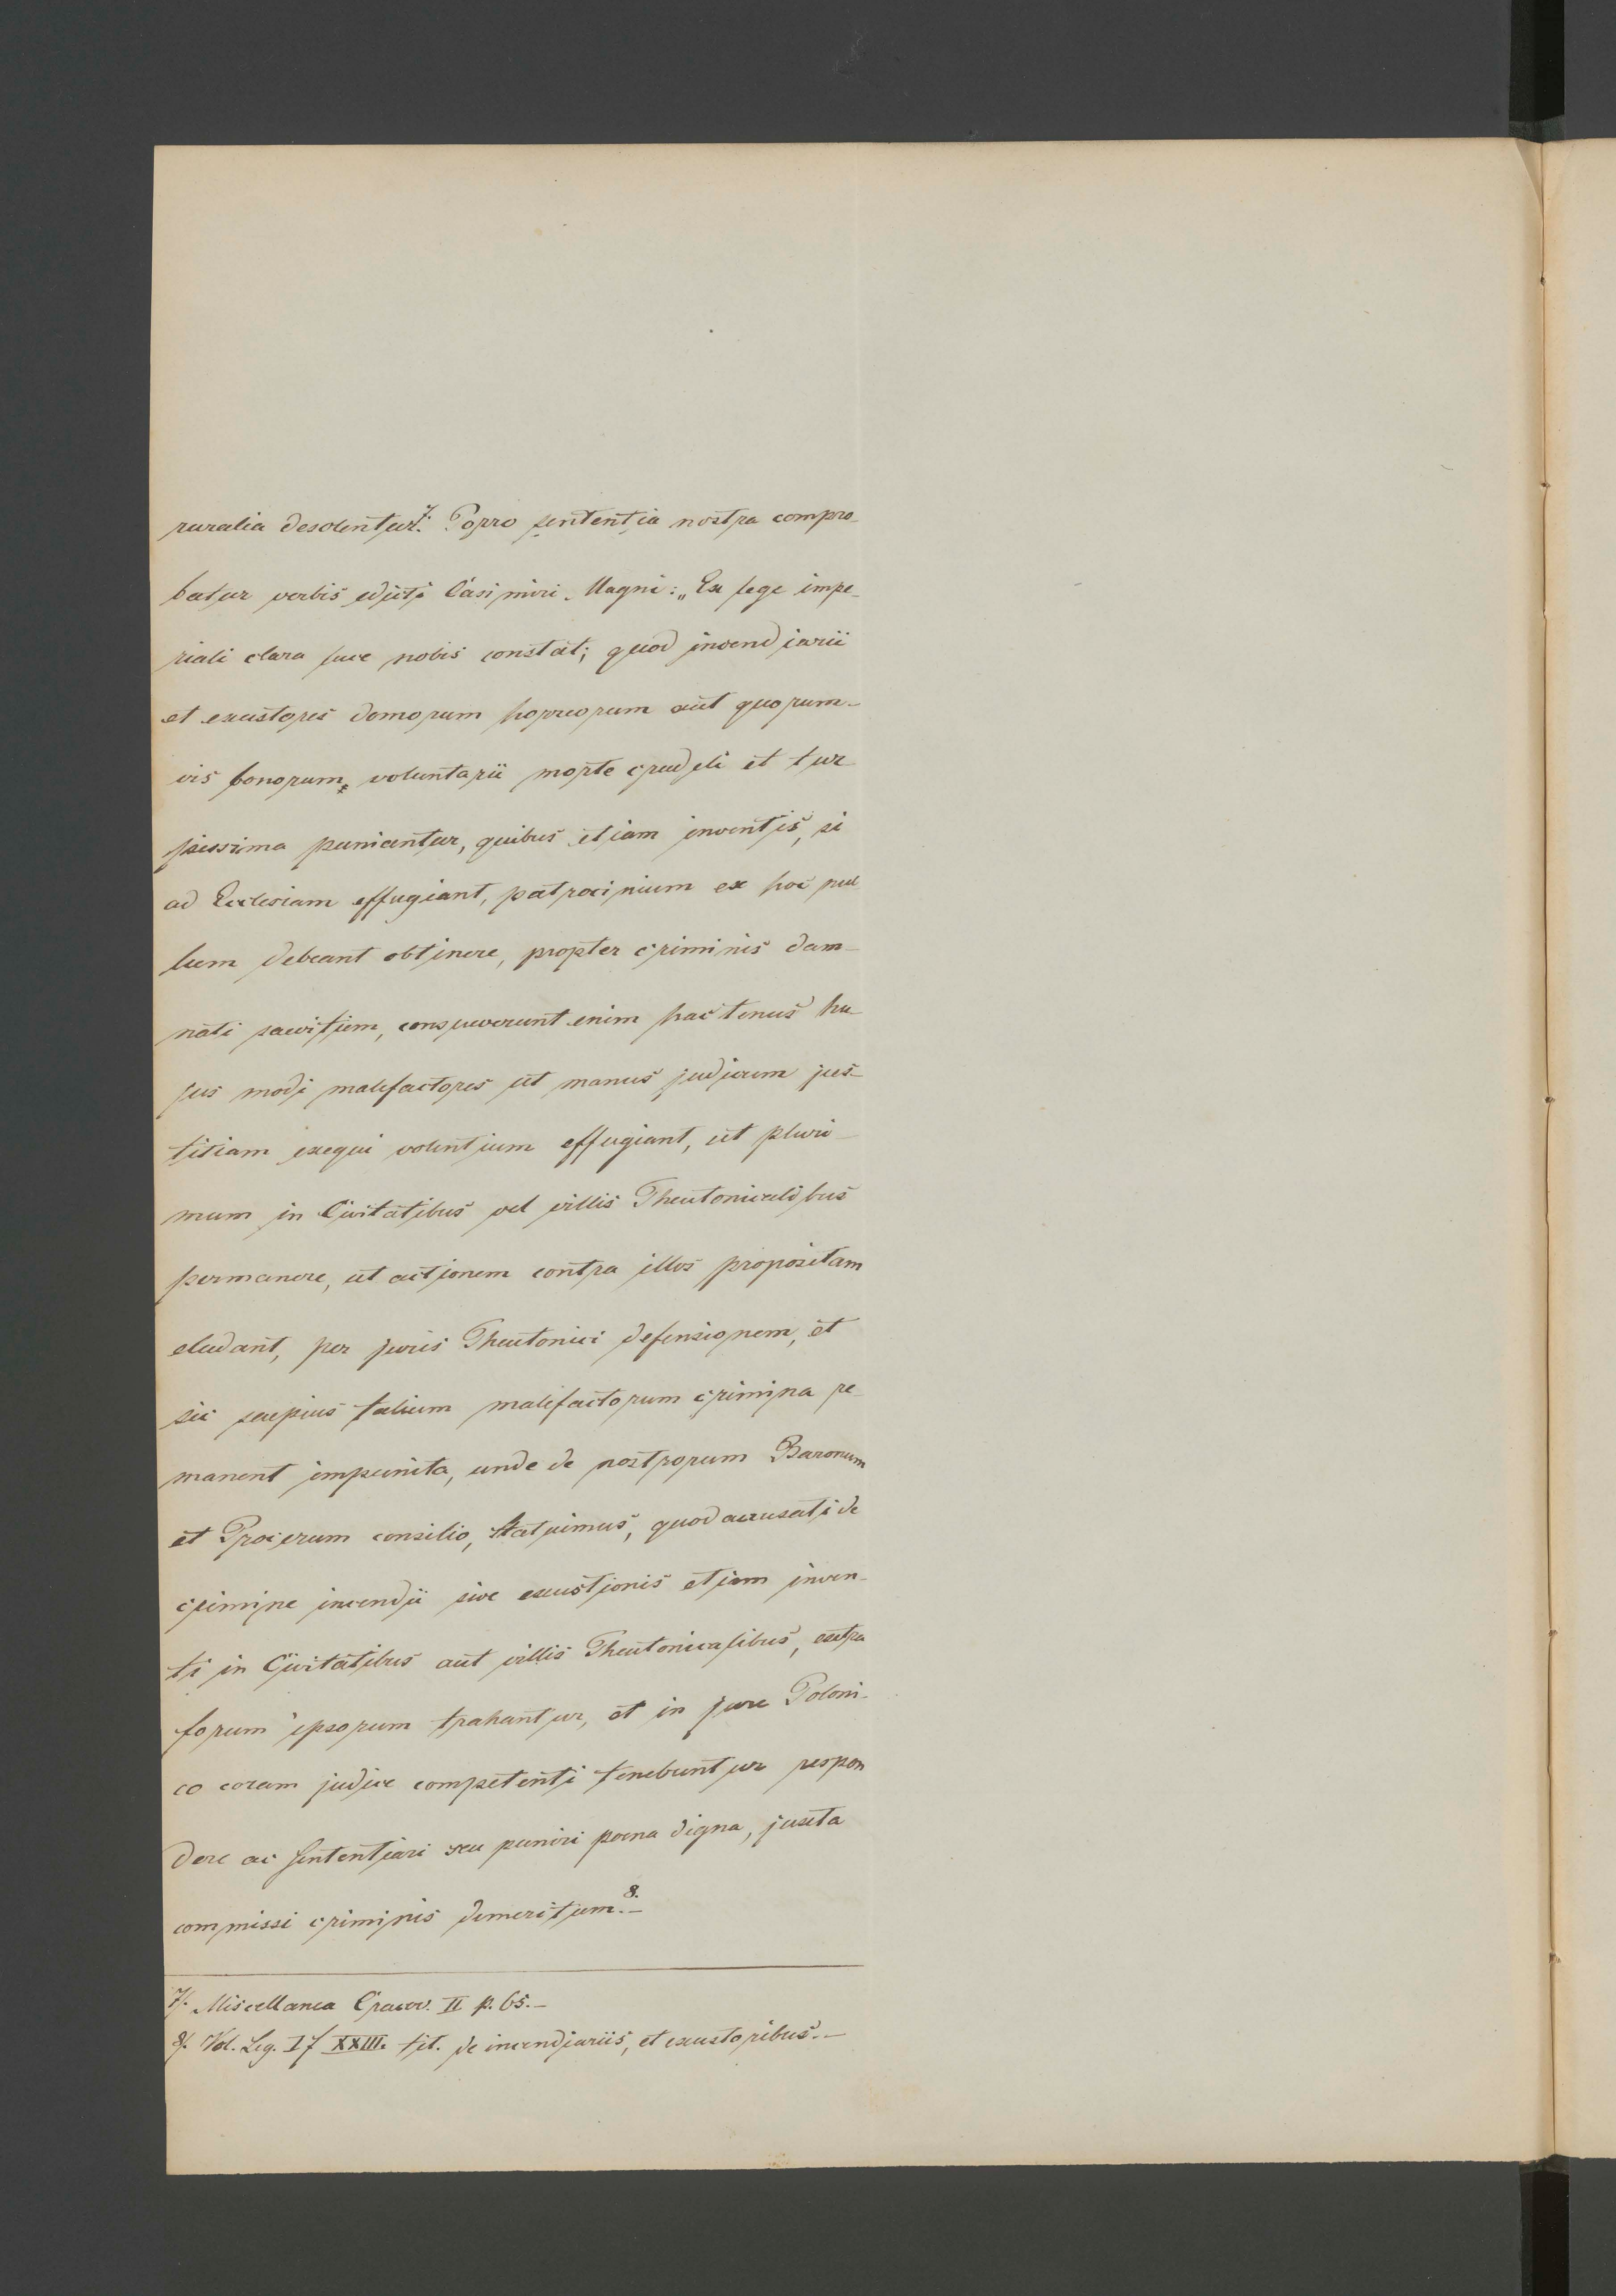 ruralia desolentur.⁷ Porro sententia nostra compro-
batur verbis edicti Casimiri Magni: „Ex lege impe-
riali clara luce nobis constat; quod incendiarii
et exustores domorum horreorum aut quorum-
vis bonorum, voluntarii morte crudeli et tur
pissima puniantur, quibus etiam inventis, si
ad Ecclesiam effugiant, patrocinium ex hoc nul
lum debeant obtinere, propter criminis dam-
nati saevitiem, consueverunt enim hactenus hu-
jus modi malefactores ut manus judicum jus-
titiam exequi volentium effugiant, ut pluri-
mum in Civitatibus vel villis Theutonicalibus
permanere, ut actionem contra illos propositam
eludant, per juris Theutonici defensionem, et
sic saepius talium malefactorum crimina re-
manent impunita, unde de nostrorum Baronum
et Procerum consilio, statuimus, quod accusati de
crimine incendii sive exustionis etiam inven-
ti in Civitatibus aut villis Theutonicalibus, extra
forum ipsorum trahantur, et in jure Poloni-
co coram judice competenti tenebuntur respon
dere ac sententiari seu puniri poena digna, juxta
commissi criminis demeritum.⁸·–
7/. Miscellanea Cracov. II p. 65.–
8/. Vol. Leg. I f XXIII. tit. de incendiariis, et exustoribus.–